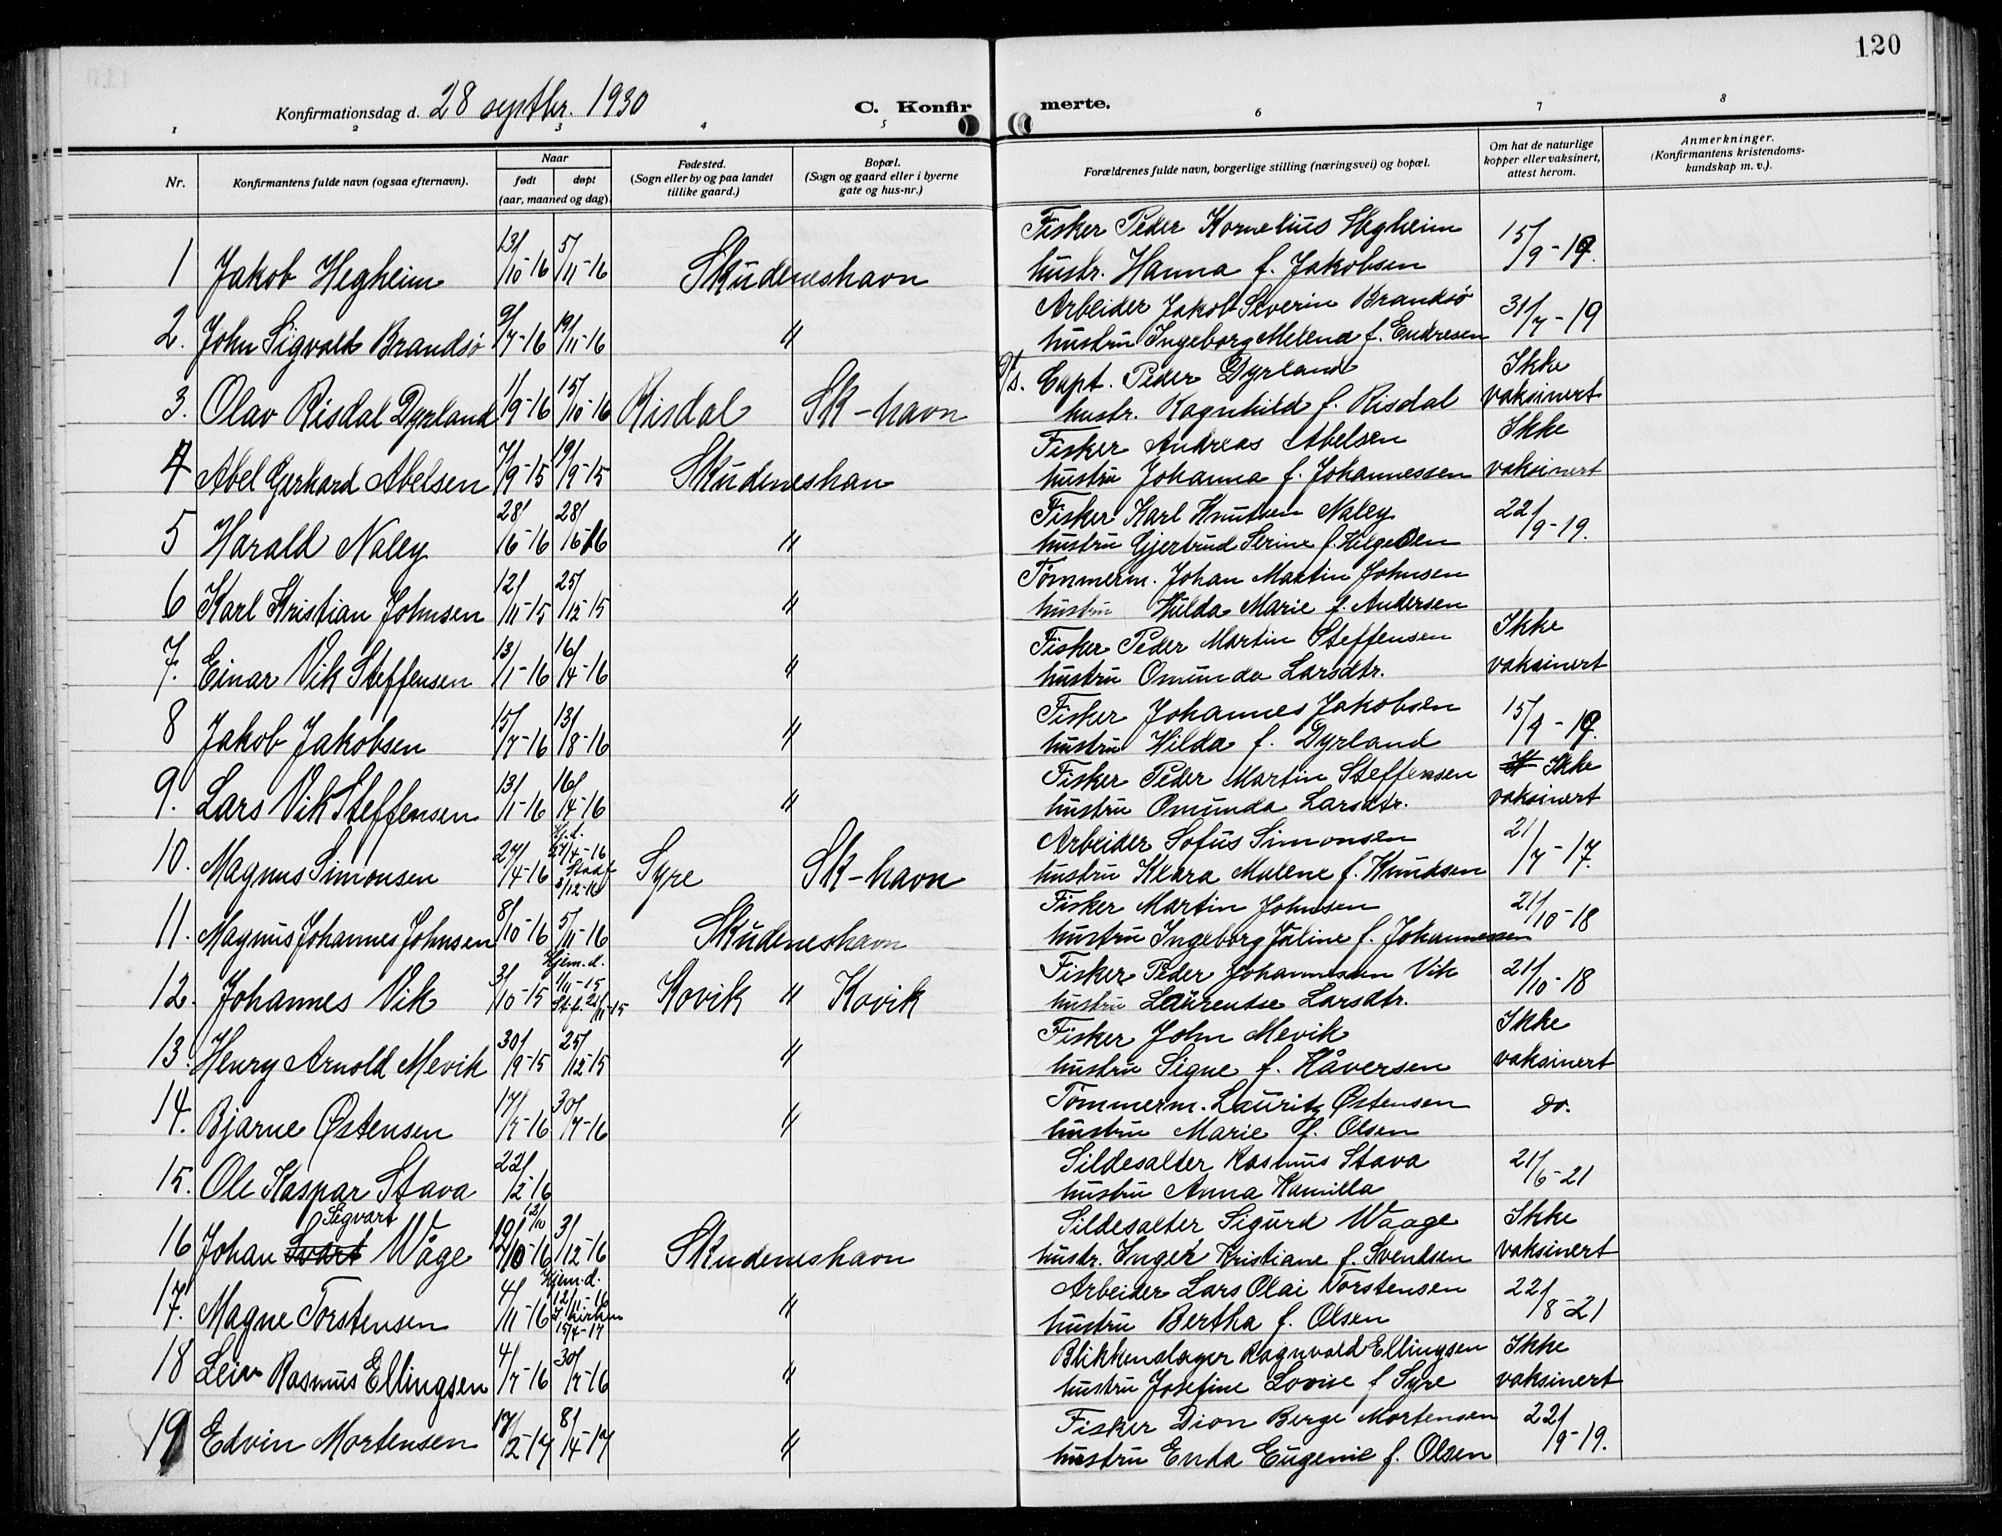 120
Konfirmationsdag d. 28 septbr. 1930 C. Konfir merte.
1 2 3 4 5 6 7 8
Nr. Konfirmantens fulde navn (ogsaa efternavn). Naar født døpt (aar, maaned og dag). Fødested. (Sogn eller by og paa landet tillike gaard.) Bopæl. (Sogn og gaard eller i byerne gate og hus-nr.) Forældrenes fulde navn, borgerlige stilling (næringsvei) og bopæl. Om hat de naturlige kopper eller vaksinert, attest herom. Anmerkninger. (Konfirmantens kristendoms-kundskap m. v.).
Fisker Peder Kornelius Hegheim
1 Jakob Hegheim 13/10-16 5/11-16 Skudeneshavn hustr. Hanna f. Jakobsen 15/9-19.
Arbeider Jakob Severin Brandsö
2. John Sigvald Brandsö 9/7-16 19/11-16 " hustru Ingeborg Melena f. Endresen 31/7-19
Capt. Peder Dyrland Ikke
3. Olav Risdal Dyrland 1/9-16 15/10-16 Risdal Sk-havn hustr. Ragnhild f. Risdal vaksinert
Fisker Andreas Abelsen Ikke
4 Abel Gerhard Abelsen 7/9-15 19/9-15 Skudeneshan hustru Johanna f. Johannessen vaksinert
Fisker Karl Knutsen Naley
5 Harald Naley 28/6-16 28/ " hustru Gjertrud Serine f. Helgesen 22/9-19.
Tömmerm. Johan Martin Johnsen
6 Karl Kristian Johnsen 12/11-15 25/12-15 " hustru Hulda Marie f. Andersen
Fisker Peder Martin Steffensen Ikke
7. Einar Vik Steffensen 13/1-16 16/4-16 " hustru Omunda Larsdtr. vaksinert
Fisker Johannes Jakobsen
8 Jakob Jakobsen 15/7-16 13/8-16 " hustru Hilda f. Dyrland 15/9-19.
Fisker Peder Martin Steffensen Ikke
9. Lars Vik Steffensen 13/1-16 16/4-16 " hustru Omunda Larsdtr. vaksinert
Arbeider Sofus Simonsen
10. Magnus Simonsen 27/4-16 Hj.d. 27/4-16 Stadf. 3/12-16 Syre Sk-havn hustru Klara Malene f. Knudsen 21/7-17.
Fisker Martin Johnsen
11. Magnus Johannes Johnsen 8/10-16 5/11-16 Skudeneshavn hustru Ingeborg Jaline f. Johannessen 21/10-18
Fisker Peder Johannesen Vik
12. Johannes Vik 3/10-15 Hjem.d. 1/11-15 St.f. Kovik " Kovik hustru Laurentse Larsdtr. 21/10-18
Fisker John Mevik Ikke
13. Henry Arnold Mevik 30/9-15 25/12-15 " hustru Signe f. Håversen vaksinert
Tömmerm. Lauritz Østensen
14. Bjarne Østensen 17/5-16 30/7-16 " hustru Marie f. Olsen Do.
Sildesalter Rasmus Stava
15. Ole Kaspar Stava 22/2-16 hustru Anna Kamilla 21/6-21
Sigvart Sildesalter Sigurd Waage Ikke
16 Johan Svart Wåge 12/10-16 3/12-16 Skudeneshavn hustr. Inger Kristiane f. Svendsen vaksinert
Arbeider Lars Olai Torstensen
17. Magne Torstensen 4/11-16 Hjem.d. 12/11-16 I kirken 15/4-17 " hustru Bertha f. Olsen 22/8-21
Blikkenslager Ragnvald Ellingsen Ikke
18 Leiv Rasmus Ellingsen 4/7-16 30/7-16 " hustru Josefine Lovise f Syre vaksinert
Fisker Dion Berge Mortensen
19 Edvin Mortensen 17/2-17 8/4-17 " hustru Enda Eugenie f. Olsen 22/9-19.